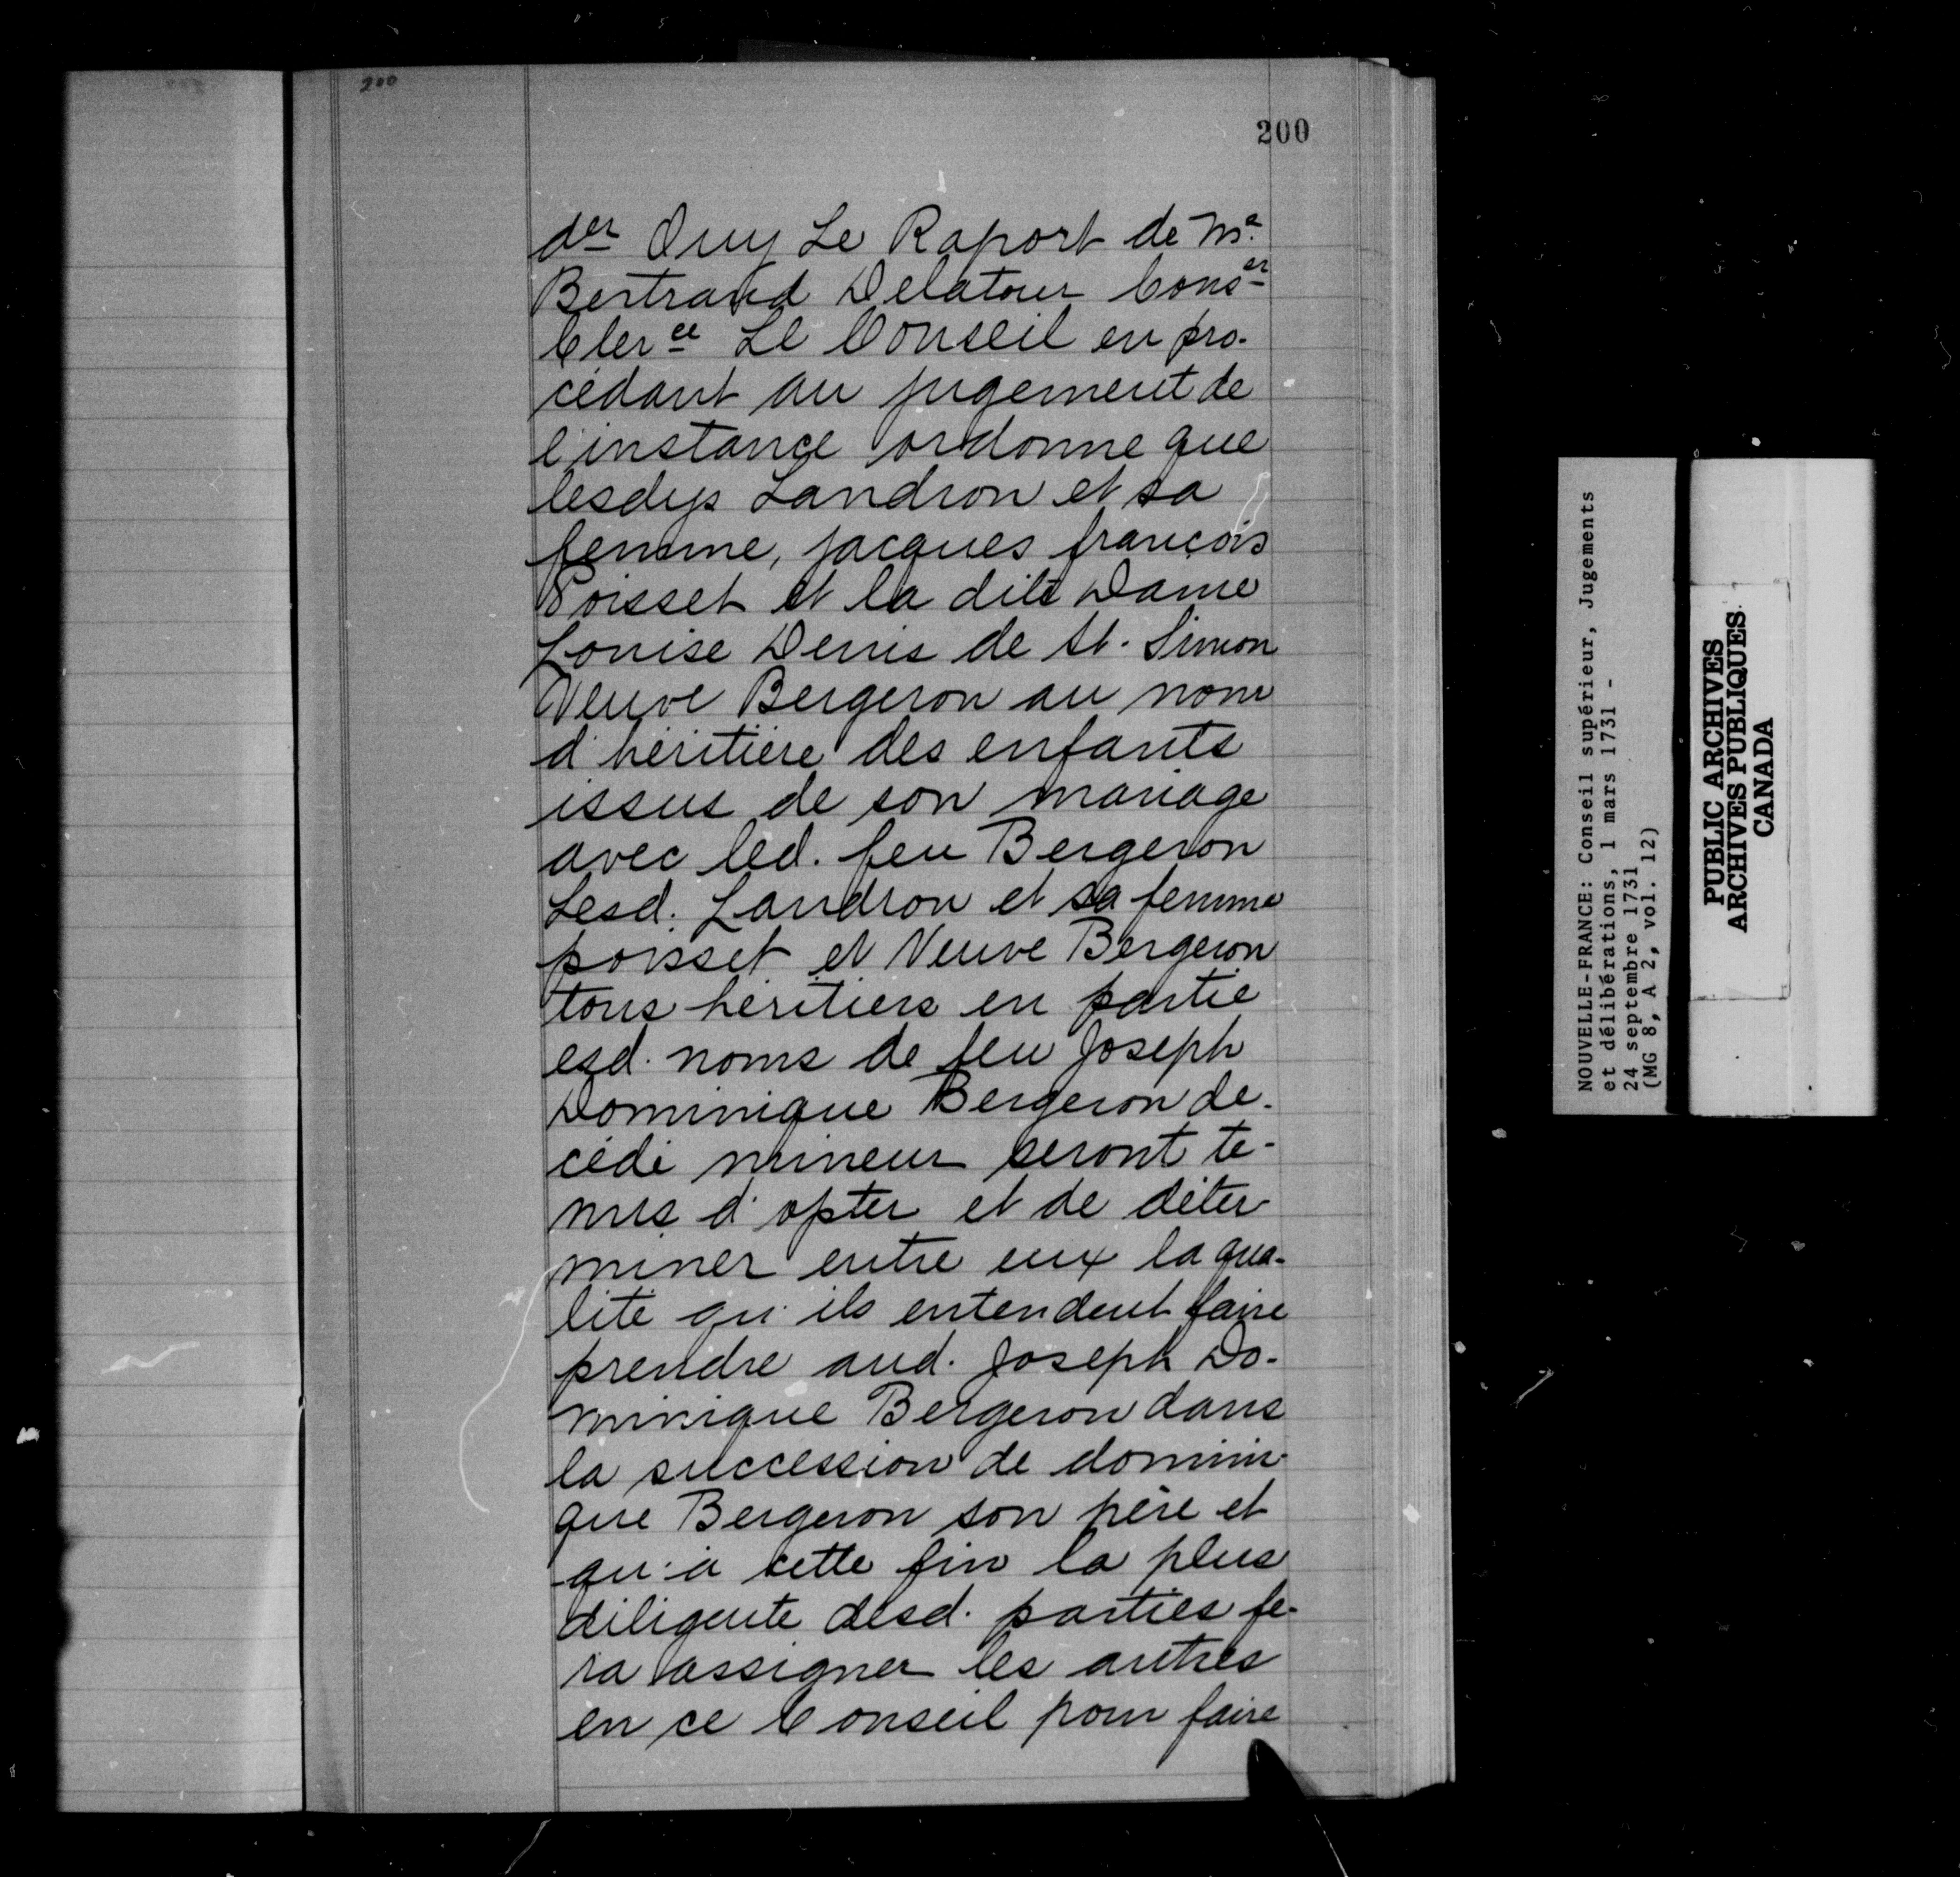 200
200
der Ouy Le Raport de Me.
Bertrand Delatour Conser
Clerce Le Conseil en pro-
cédant au jugement de
l'instance ordonne que
lesdys Landron et sa
femme, jacques françois
Poisset et la dite Dame
Louise Denis de St. Simon
Veuve Bergeron au nom
d'héritière des enfants
issus de son mariage
avec led. feu Bergeron
Lesd. Landron et sa femme
poisset et Veuve Bergeron
tous héritiers en partie
esd. noms de feu Joseph
Dominique Bergeron de-
cédé mineur seront te-
nus d'opter et de déter
miner entre eux la qua-
lité qu'ils entendent faire
prendre aud. Joseph Do-
minique Bergeron dans
la succession de domini-
que Bergeron son père et
qu'à cette fin la plus
diligente desd. parties fe-
ra assigner les autres
en ce Conseil pour faire
NOUVELLE-FRANCE: Conseil supérieur, Jugements
et délibérations, 1 mars 1731 -
24 septembre 1731
(MG 8, A 2, vol. 12)
PUBLIC ARCHIVES
ARCHIVES PUBLIQUES
CANADA